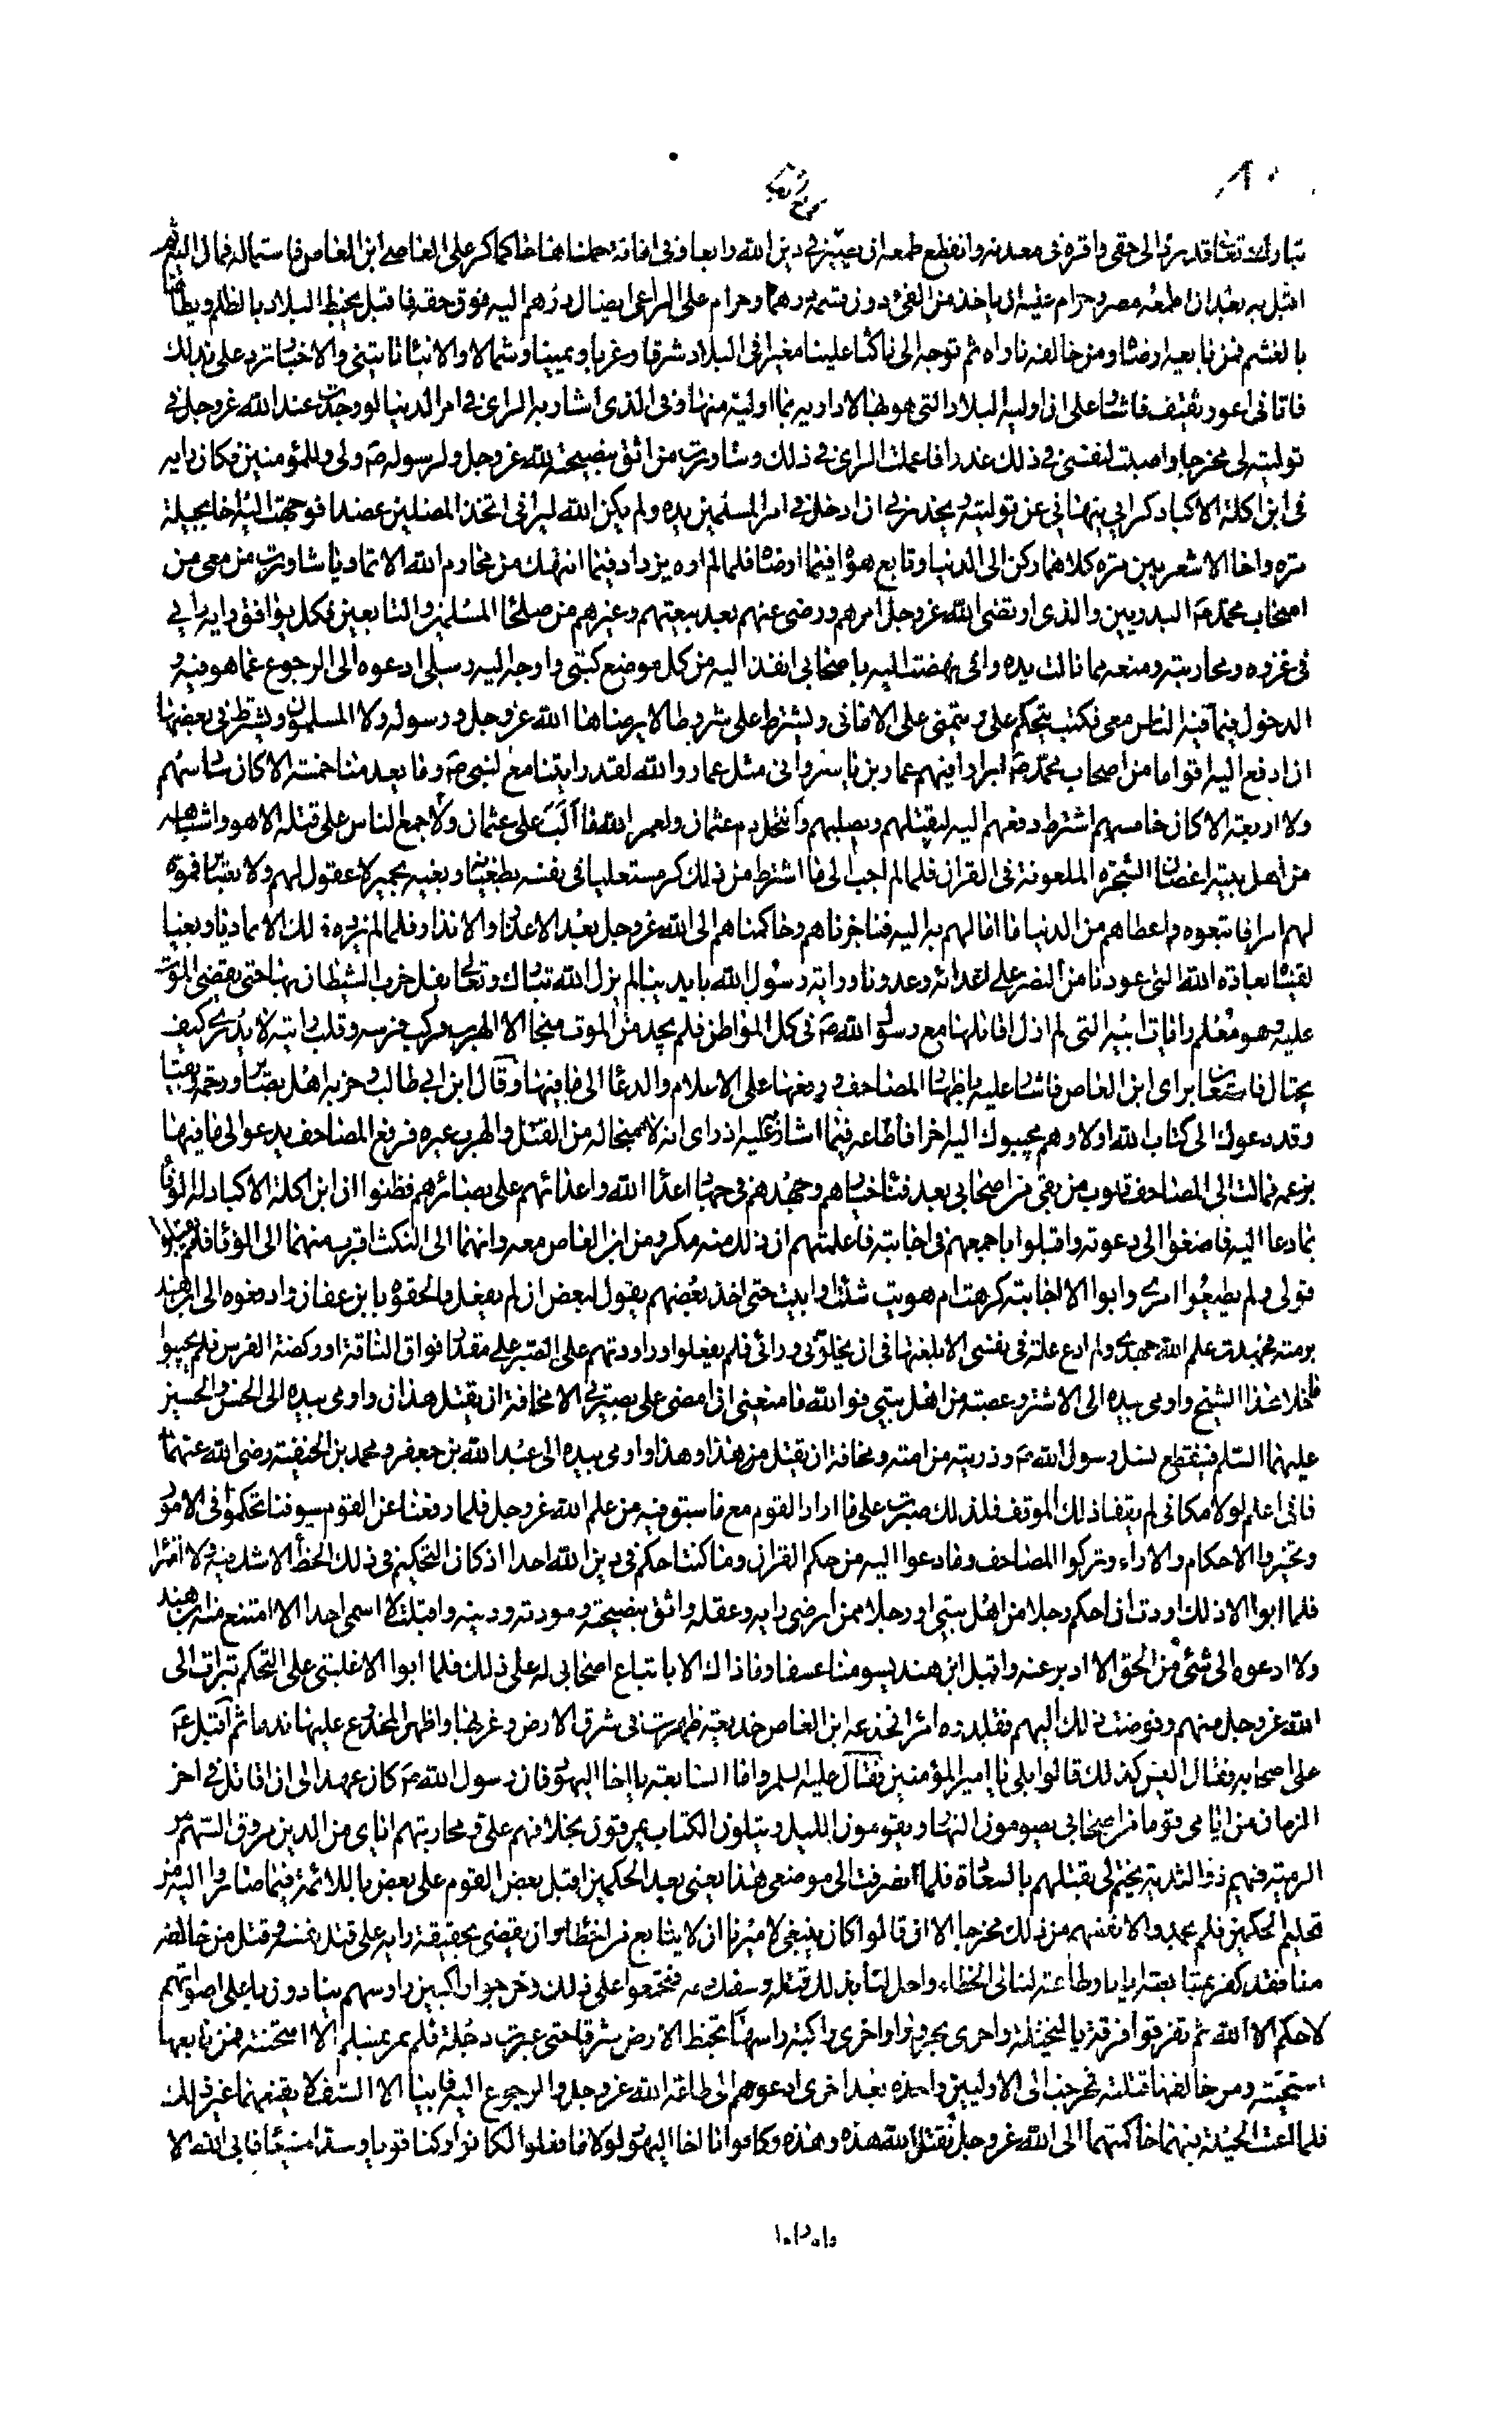 تبارك وتعالى قد رد الى حقى واقره فى معدنه وانقطع طمعه ان يصير فى دين الله رابعا وفى امانة حملناها حاكما كر على العاصى ابن العاص فاستماله فمال اليه ثم
اقبل به بعد ان اطمعه مصر وحرام عليه ان ياخذ من الفئ دون قسمه درهما وحرام على الراعى ايصال درهم اليه فوق حقه فاقبل يخبط البلاد بالظلم ويطأها
بالغشم فمن بايعه ارضاه ومن خالفه ناواه ثم توجه الى ناكثا علينا مغيرا فى البلاد شرقا وغربا ويمينا وشمالا والانباء تاتينى والاخبار ترد على بذلك
فاتانى اعور ثقيف فاشار على ان اوليه البلاد التى هو بها لاداريه بما اوليه منها وفى الذى اشار به الراى فى امر الدنيا لو وجدت عند الله عز وجل فى
توليته لى مخرجا واصبت لنفسى فى ذلك عذرا فاعملت الراى فى ذلك وشاورت من اثق بنصيحته لله عز وجل ولرسوله ص ولى وللمؤمنين فكان رايه
فى ابن اكلة الاكباد كرايى ينهانى عن توليته ويحذرنى ان ادخل فى امر المسلمين يده ولم يكن الله ليرانى اتخذ المضلين عضدا فوجهت اليه اخا بجيلة
مرة واخا الاشعريين مرة كلاهما ركن الى الدنيا وتابع هواه فيما ارضاه فلما لم اره يزداد فيما انتهك من محارم الله الا تماديا شاورت من معى من
اصحاب محمد ص البدريين والذى ارتضى الله عز وجل امرهم ورضى عنهم بعد بيعتهم وغيرهم من صلحاء المسلمين والتابعين فكل يوافق رايه رايى
فى غزوه ومحاربته ومنعه مما نالت يده وانى نهضت اليه باصحابى انفذ اليه من كل موضع كتبى واوجه اليه رسلى ادعوه الى الرجوع عما هو فيه و
الدخول فيما فيه الناس معى فكتب يتحكم على ويتمنى على الامانى ويشترط على شروطا لا يرضاها الله عز وجل ورسوله ولا المسلمون ويشترط فى بعضها
ان ادفع اليه اقواما من اصحاب محمد ص ابرارا فيهم عمار بن ياسر واين مثل عمار والله لقد رايتنا مع النبى ص وما يعد منا خمسة الا كان سادسهم
ولا اربعة الا كان خامسهم اشترط دفعهم اليه ليقتلهم ويصلبهم وانتحل دم عثمان ولعمر الله ما الب على عثمان ولا جمع الناس على قتله الا هو واشباهه
من اهل بيته اغصان الشجرة الملعونة فى القران فلما لم اجب الى ما اشترط من ذلك كر مستعليا فى نفسه بطغيانه وبغيه بحمير لا عقول لهم ولا بصائر فموه
لهم امرا فاتبعوه واعطاهم من الدنيا ما امالهم به اليه فناجزناهم وحاكمناهم الى الله عز وجل بعد الاعذار والانذار فلما لم يزده ذلك الا تماديا وبغيا
لقيناه بعادة الله التى عودنا من النصر على اعدائه وعدونا وراية رسول الله بايدينا لم يزل الله تبارك وتعالى يفل حزب الشيطان بها حتى يقضى الموت
عليه وهو معلم رايات ابيه التى لم ازل اقاتلها مع رسول الله ص فى كل المواطن فلم يجد من الموت منجا الا الهرب فركب فرسه وقلب رايته لا يدرى كيف
يحتال فاستعان براى ابن العاص فاشار عليه باظهار المصاحف ورفعها على الاعلام والدعاء الى ما فيها وقال ان ابن ابى طالب وحزبه اهل بصائر ورحمة وبقيا
وقد دعوك الى كتاب الله اولا وهم مجيبوك اليه اخرا فاطاعه فيما اشار عليه اذ راى انه لا منجا له من القتل والهرب غيره فرفع المصاحف يدعو الى ما فيها
بزعمه فمالت الى المصاحف قلوب من بقى من اصحابى بعد فناء خيارهم وجهدهم فى جهاد اعداء الله واعدائهم على بصائرهم فظنوا ان ابن اكلة الاكباد له الوفاء
بما دعا اليه فاصغوا الى دعوته واقبلوا باجمعهم فى اجابته فاعلمتهم ان ذلك منه مكر ومن ابن العاص معه وانهما الى النكث اقرب منهما الى الوفاء فلم يقبلوا
قولى ولم يطيعوا امرى وابوا الا اجابته كرهت ام هويت شئت او ابيت حتى اخذ بعضهم يقول لبعض ان لم يفعل فالحقوه بابن عفان وادفعوه الى ابن هند
برمته فجهدت علم الله جهدى ولم ادع علة فى نفسى الا بلغتها فى ان يخلونى ورائى فلم يفعلوا وراودتهم على الصبر على مقدار فواق الناقة او ركضة الفرس فلم يجيبوا
ما خلا هذا الشيخ واومى بيده الى الاشتر وعصبة من اهل بيتى فوالله ما منعنى ان امضى على بصيرتى الا مخافة ان يقتل هذان واومى بيده الى الحسن والحسين
عليهما السلم فينقطع نسل رسول الله ص وذريته من امته ومخافة ان يقتل هذا وهذا واومى بيده الى عبد الله بن جعفر ومحمد بن الحنفية رضى الله عنهما
فانى اعلم لولا مكانى لم يقفا ذلك الموقف فلذلك صبرت على ما اراد القوم مع ما سبق فيه من علم الله عز وجل فلما رفعنا عن القوم سيوفنا تحكموا فى الامور
وتخيروا الاحكام والاراء وتركوا المصاحف وما دعوا اليه من حكم القران وما كنت احكم فى دين الله احدا اذ كان التحكيم فى ذلك الخطأ الا شك فيه ولا امترا
فلما ابوا الا ذلك اردت ان احكم رجلا من اهل بيتى او رجلا ممن ارضى رايه وعقله واثق بنصيحته ومودته ودينه واقبلت لا اسمى احدا الا امتنع منه ابن هند
ولا ادعوه الى شئ من الحق الا ادبر عنه واقبل ابن هند يسومنا عسفا وما ذاك الا باتباع اصحابى له على ذلك فلما ابوا الا غلبتى على التحكم تبرات الى
الله عز وجل منهم وفوضت ذلك اليهم فقلدوه امرا فخدعه ابن العاص خديعة ظهرت فى شرق الارض وغربها واظهر المخدوع عليها ندما ثم اقبل ع
على اصحابه فقال اليس كذلك قالوا بلى يا امير المؤمنين فقال عليه السلم واما السابعة يا اخا اليهود فان رسول الله ص كان عهد الى ان اقاتل فى اخر
الزمان من ايامى قوما من اصحابى يصومون النهار ويقومون الليل ويتلون الكتاب يمرقون بخلافهم على ومحاربتهم اياى من الدين مروق السهم من
الرمية فيهم ذو الثدية يختم لى بقتلهم بالسعادة فلما انصرفت الى موضعى هذا يعنى بعد الحكمين اقبل بعض القوم على بعض باللائمة فيما صاروا اليه من
تحكيم الحكمين فلم يجدوا لانفسهم من ذلك مخرجا الا ان قالوا كان ينبغى لاميرنا ان لا يتابع من اخطأ وان يقضى بحقيقة رايه على قتل نفسه وقتل من خالفه
منا فقد كفر بمتابعته ايانا وطاعته لنا فى الخطاء واحل لنا بذلك قتله وسفك دمه فتجمعوا على ذلك وخرجوا راكبين رؤسهم ينادون باعلى اصواتهم
لا حكم الا لله ثم تفرقوا فرقة بالنخيلة واخرى بحروراء واخرى راكبة راسها تخبط الارض شرقا حتى عبرت دجلة فلم تمر بمسلم الا امتحنته فمن تابعها
استحيته ومن خالفها قتلته فخرجت الى الاوليين واحدة بعد اخرى ادعوهم الى طاعة الله عز وجل والرجوع اليه فابيا الا السيف لا يقنعهما غير ذلك
فلما اعيت الحيلة فيهما حاكمتهما الى الله عز وجل فقتل الله هذه وهذه وكانوا يا اخا اليهود لولا ما فعلوا لكانوا ركنا قويا وسدا منيعا فابى الله الا